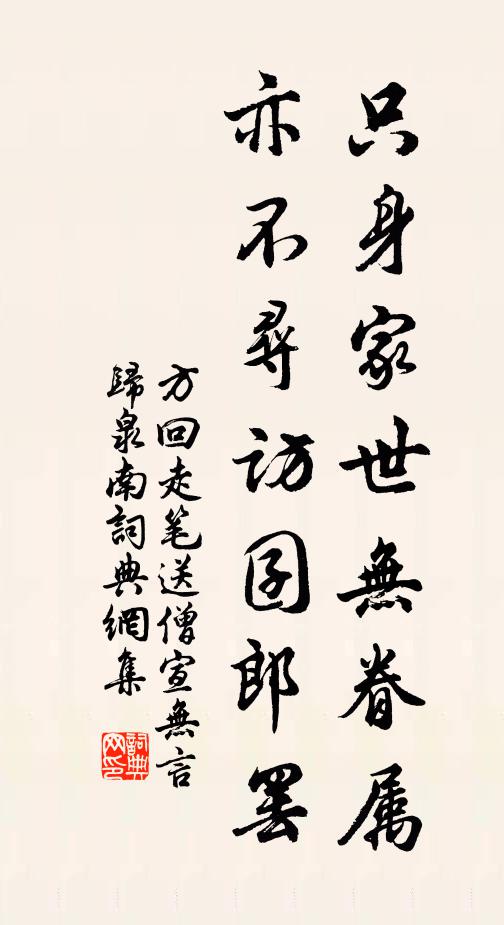 只身家世無眷属
亦不尋訪囝郎罷
方回走笔送僧宣無言
歸泉南詞典網集
詞典
网印